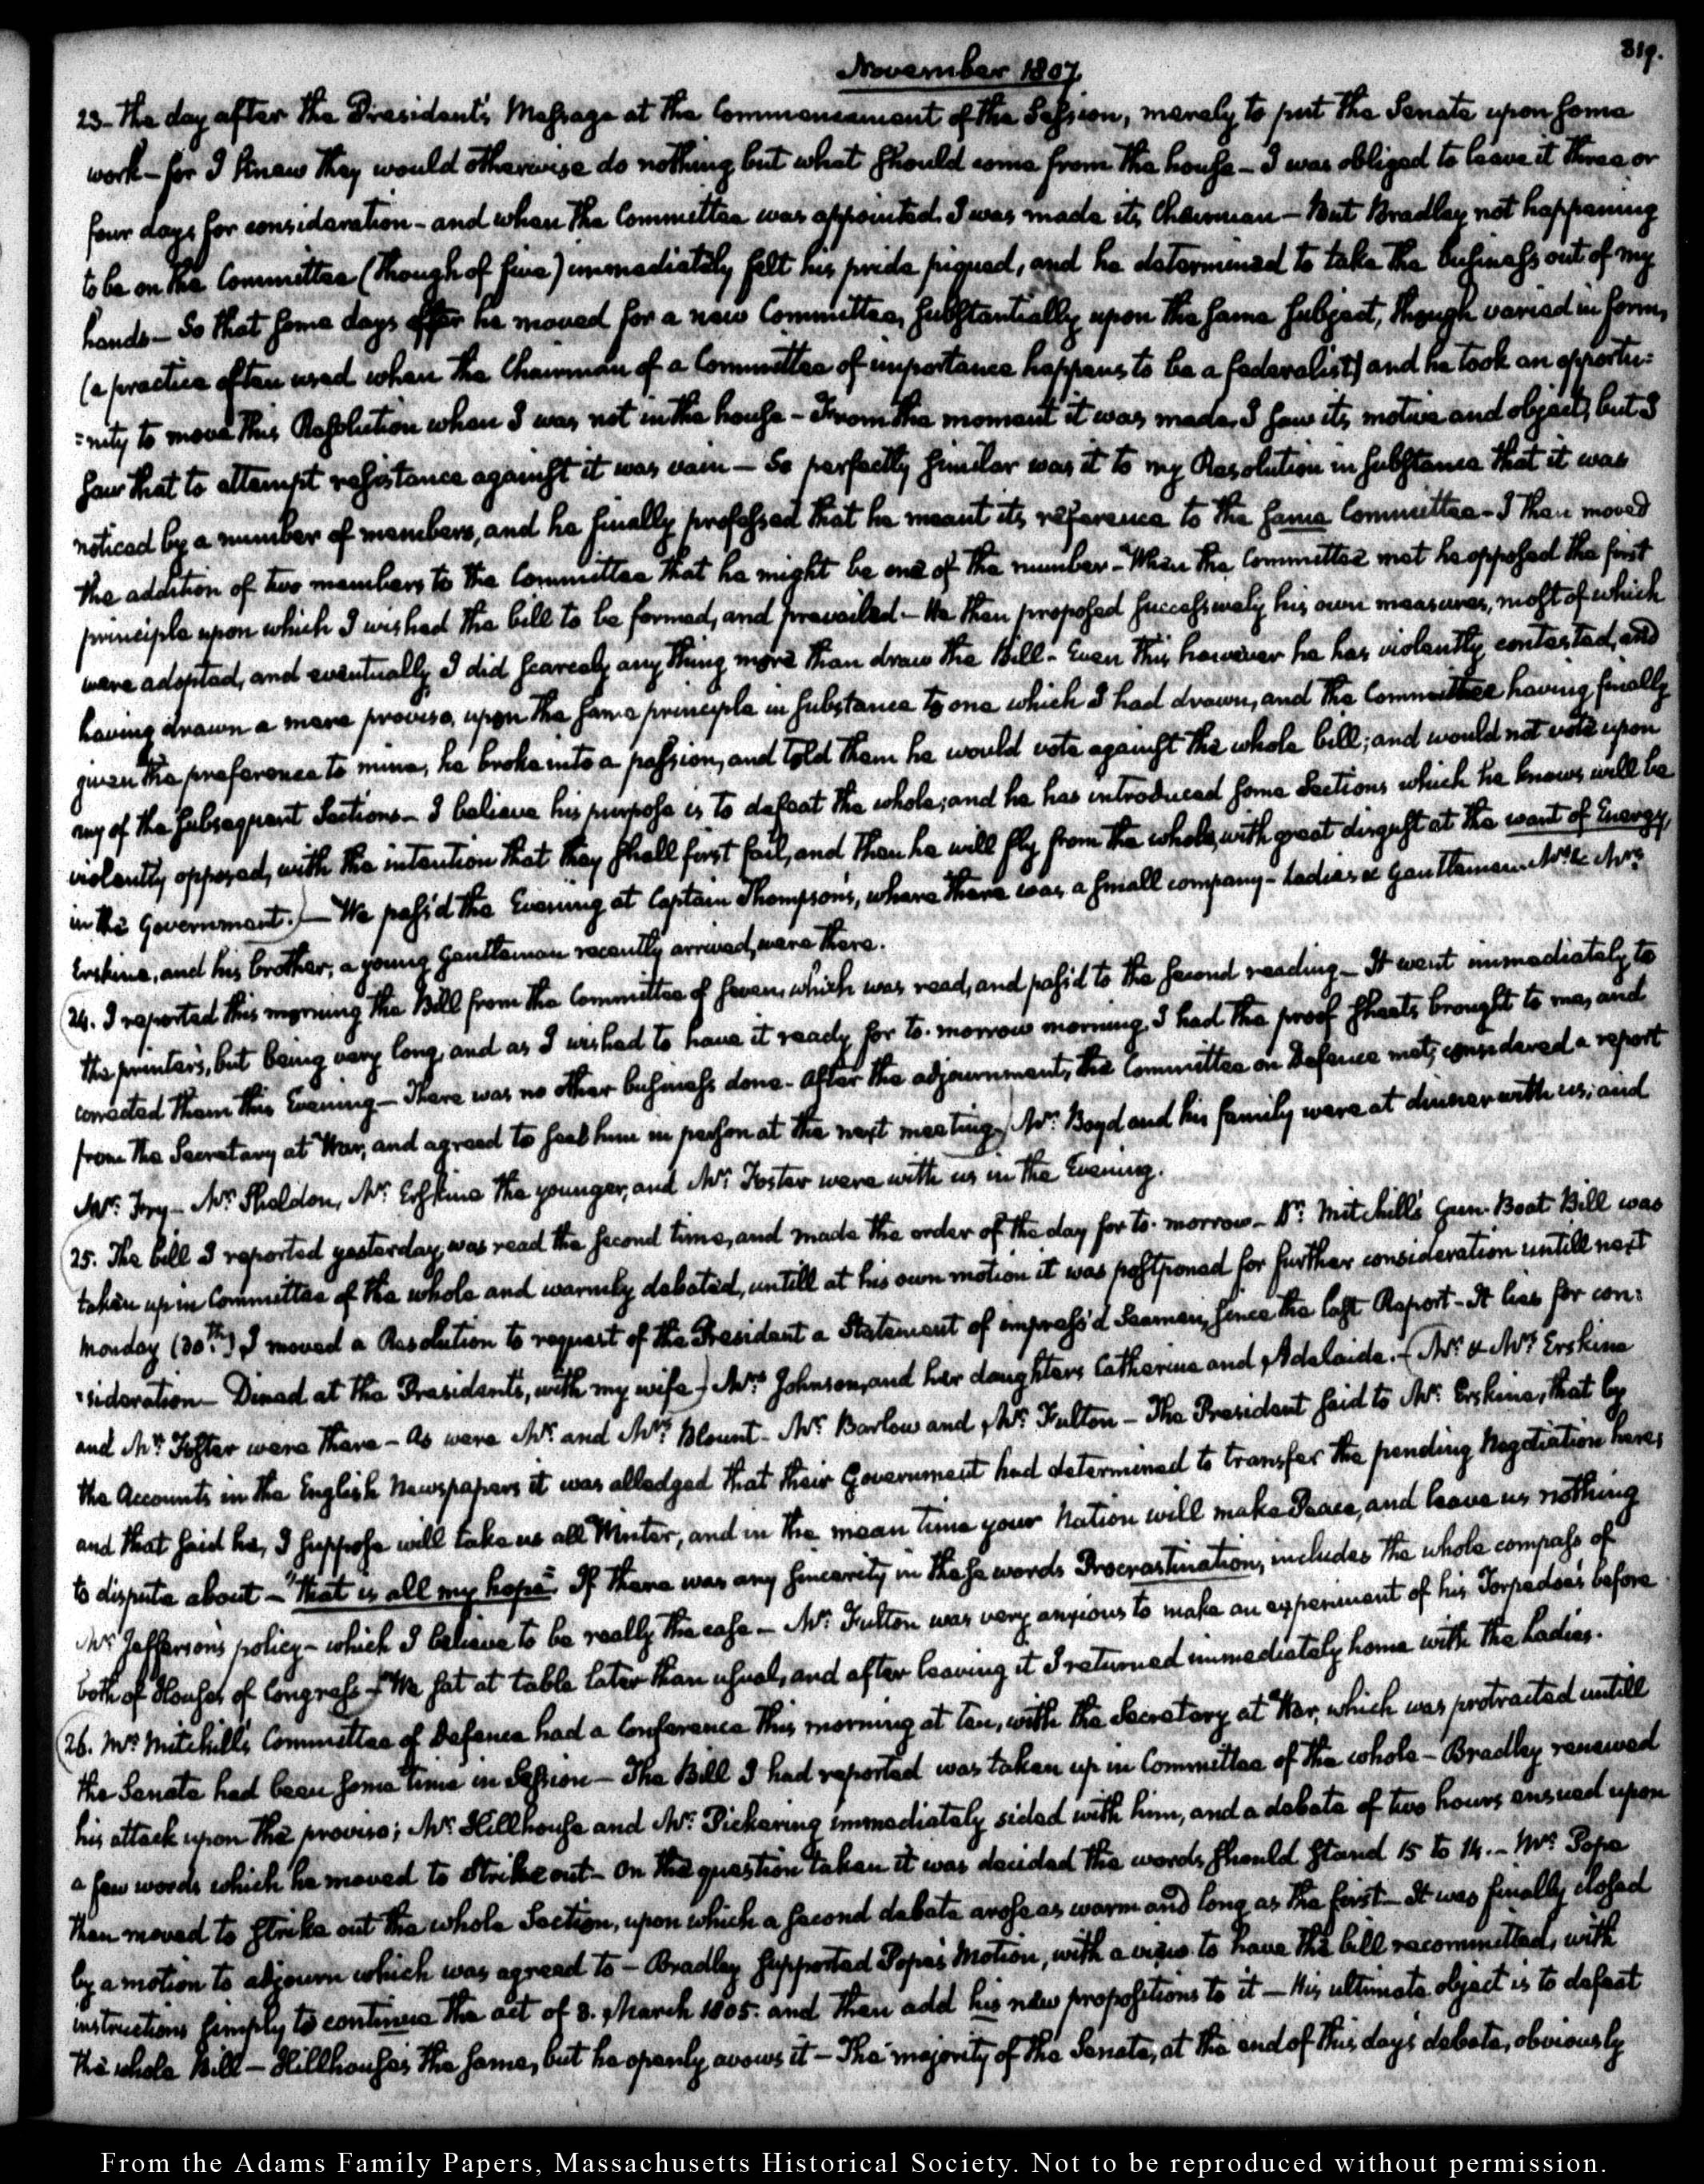 319.
November 1807.
23- The day after the President's Message at the Commencement of the Session, merely to put the Senate upon some
work- for I knew they would otherwise do nothing but what should come from the house- I was obliged to leave it three or
four days for consideration- and when the Committee was appointed, I was made its Chairman- But Bradley not happening
to be on the Committee (though of five) immediately felt his pride piqued, and he determined to take the business out of my
hands- So that some days after he moved for a new Committee, substantially upon the same subject, though varied in form,
(a practice often used when the Chairman of a Committee of importance happens to be a federalist) and he took an opportu=
=nity to move this Resolution when I was not in the house- From the moment it was made, I saw its motive and object, but I
saw that to attempt resistance against it was vain- So perfectly similar was it to my Resolution in substance that it was
noticed by a number of members, and he finally professed that he meant its reference to the same Committee- I then moved
the addition of two members to the Committee that he might be one of the number- When the Committee met he opposed the first
principle upon which I wished the bill to be formed, and prevailed- He then proposed successively his own measures, most of which
were adopted, and eventually I did scarcely any thing more than draw the Bill- Even this however he has violently contested, and
having drawn a mere proviso, upon the same principle in substance to one which I had drawn, and the Committee having finally
given the preference to mine, he broke into a passion, and told them he would vote against the whole bill; and would not vote upon
any of the subsequent Sections- I believe his purpose is to defeat the whole; and he has introduced some Sections which he knows will be
violently opposed, with the intention that they shall first fail, and then he will fly from the whole, with great disgust at the want of Energy,
in the Government.)- We pass'd the Evening at Captain Thompson's, where there was a small company- Ladies & Gentlemen. Mr. & Mrs.
Erskine, and his brother, a young Gentleman recently arrived, were there.
24. I reported this morning the Bill from the Committee of seven, which was read, and pass'd to the second reading- It went immediately to
the printers, but being very long, and as I wished to have it ready for to-morrow morning, I had the proof sheets brought to me, and
corrected them this Evening- There was no other business done- After the adjournment, the Committee on Defence met, considered a report
from the Secretary at War, and agreed to see him in person at the next meeting.) Mr. Boyd and his family were at dinner with us; and
Mr. Fry- Mr. Sheldon, Mr. Erskine the younger, and Mr. Foster were with us in the Evening.
25. The bill I reported yesterday, was read the second time, and made the order of the day for to-morrow- Dr. Mitchill's Gun-Boat Bill was
taken up in Committee of the whole and warmly debated, untill at his own motion it was postponed for further consideration untill next
Monday (30th.) I moved a Resolution to request of the President a Statement of impress'd Seamen, since the last Report- It lies for con=
=sideration- Dined at the President's, with my wife) Mrs. Johnson, and her daughters Catherine and Adelaide.- (Mr. & Mrs. Erskine
and Mr. Foster were there- As were Mr. and Mrs. Blount- Mr. Barlow and Mr. Fulton- The President said to Mr. Erskine, that by
the Accounts in the English Newspapers it was alledged that their Government had determined to transfer the pending Negotiation here;
and that said he, I suppose will take us all Winter, and in the mean time your Nation will make Peace, and leave us nothing
to dispute about- "that is all my hope". If there was any sincerity in these words Procrastination, includes the whole compass of
Mr. Jefferson's policy- which I believe to be really the case- Mr. Fulton was very anxious to make an experiment of his Torpedoes before
both of Houses of Congress-) We sat at table later than usual, and after leaving it I returned immediately home with the Ladies.
26. Mr. Mitchill's Committee of Defence had a Conference this morning at ten, with the Secretary at War, which was protracted untill
the Senate had been some time in Session- The Bill I had reported was taken up in Committee of the whole- Bradley renewed
his attack upon the proviso; Mr. Hillhouse and Mr. Pickering immediately sided with him, and a debate of two hours ensued upon
a few words which he moved to strike out- On the question taken it was decided the words should stand 15 to 14.- Mr. Pope
then moved to strike out the whole Section, upon which a second debate arose as warm and long as the first- It was finally closed
by a motion to adjourn which was agreed to- Bradley supported Pope's Motion, with a view to have the bill recommitted, with
instructions simply to continue the act of 3. March 1805. and then add his new propositions to it- His ultimate object is to defeat
the whole Bill- Hillhouse's the same, but he openly avows it- The majority of the Senate, at the end of this day's debate, obviously
From the Adams Family Papers, Massachusetts Historical Society. Not to be reproduced without permission.